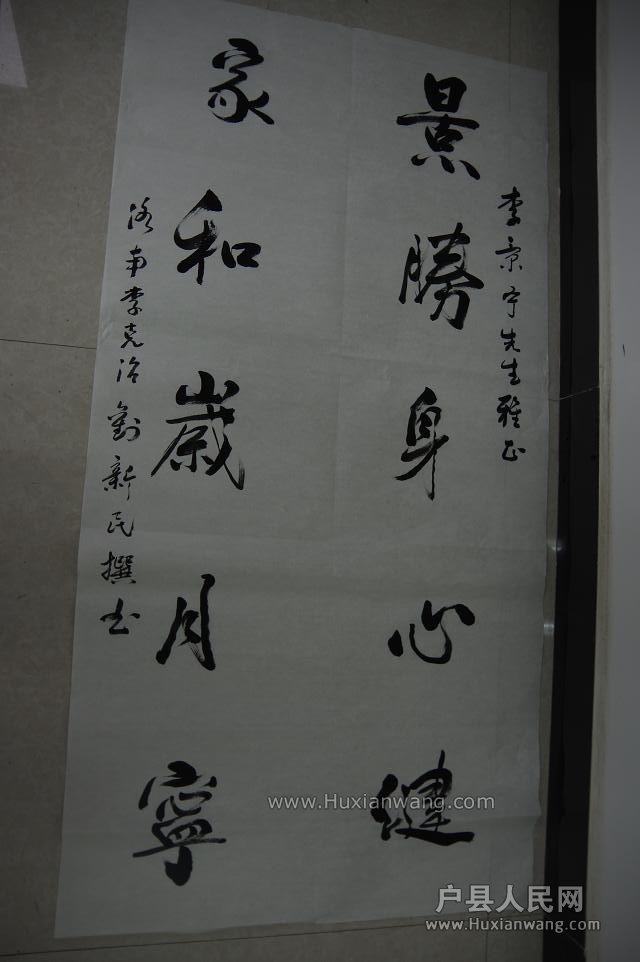 李京宁先生雅正
景勝身心健
家和歲月寧
洛南李克治劉新民撰书
www.Huxianwang.com
户县人民网
www.Huxianwang.com